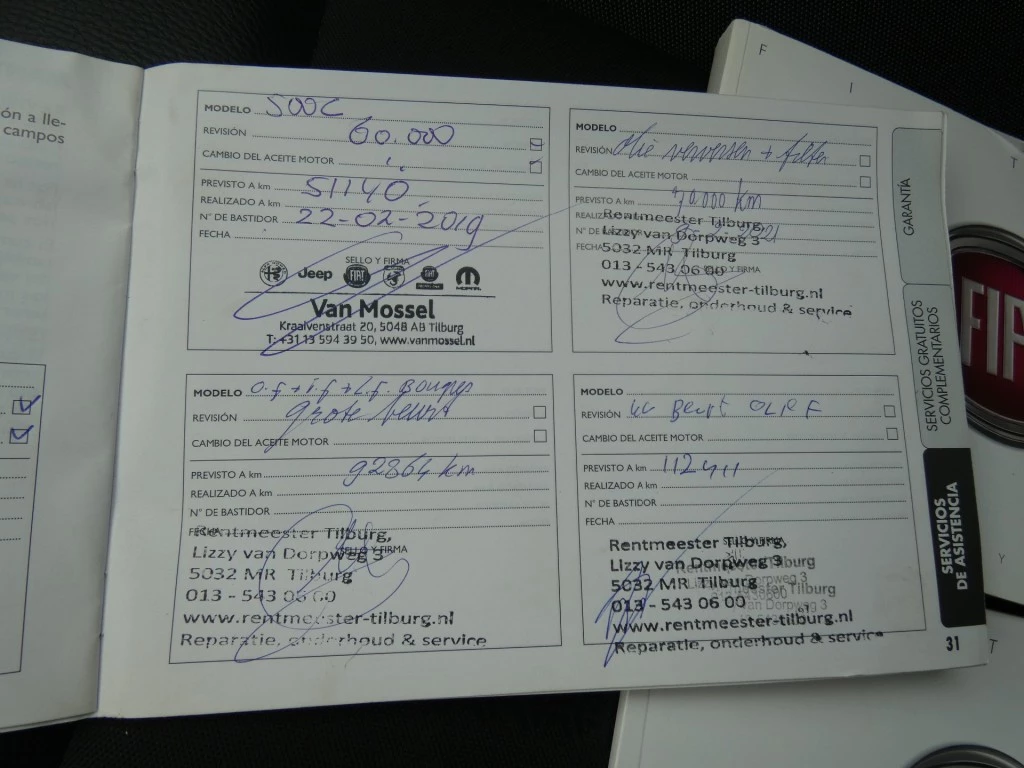 ón a lle-
campos
MODELO 500C
REVISIÓN 60.000
CAMBIO DEL ACEITE MOTOR
PREVISTO A km 51140
REALIZADO A km
N° DE BASTIDOR 22-02-2019
FECHA
SELLO Y FIRMA
Jeep FIAT MOPAR
Van Mossel
Kraalvenstraat 20, 5048 AB Tilburg
T: +31 13 594 39 50, www.vanmossel.nl
MODELO
REVISIÓN Olie verversen + filter
CAMBIO DEL ACEITE MOTOR
PREVISTO A km 70.000 km
REALIZADO
Rentmeester Tilburg,
N° DE
Lizzy van Dorpweg 3
FECHA
5032 MR Tilburg
013 - 543 06 00
Y FIRMA
www.rentmeester-tilburg.nl
Reparatie, onderhoud & service
MODELO o.f + i.f + l.f. Bougies
REVISIÓN grote beurt
CAMBIO DEL ACEITE MOTOR
PREVISTO A km 92864 km
REALIZADO A km
N° DE BASTIDOR
FECHA
Rentmeester Tilburg,
SELLO Y FIRMA
Lizzy van Dorpweg 3
5032 MR Tilburg
013 - 543 06 00
www.rentmeester-tilburg.nl
Reparatie, onderhoud & service
MODELO
REVISIÓN
CAMBIO DEL ACEITE MOTOR
PREVISTO A km 112411
REALIZADO A km
N° DE BASTIDOR
FECHA
Rentmeester Tilburg,
Lizzy van Dorpweg 3
5032 MR Tilburg
013 - 543 06 00
www.rentmeester-tilburg.nl
Reparatie, onderhoud & service
GARANTÍA
SERVICIOS GRATUITOS
COMPLEMENTARIOS
SERVICIOS
DE ASISTENCIA
31
F
I
T
FIA
Y
T